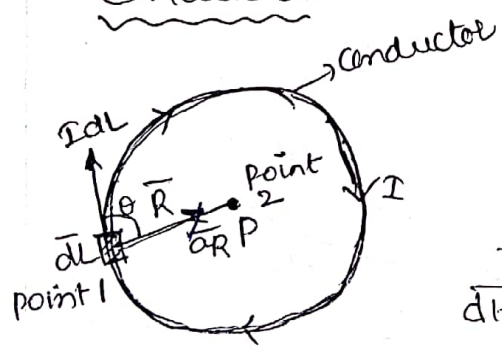 conductor
IdL
Point
2
θ
R̅
I
a̅R
P
d̅L
Point 1
dH